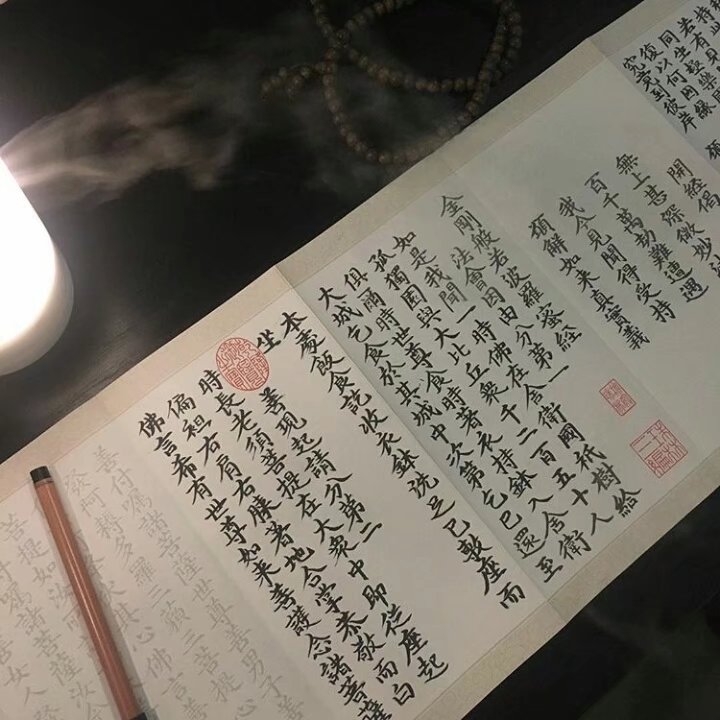 復以何因緣
究竟到彼岸
開經偈
無上甚深微妙法
百千萬劫難遭遇
我今見聞得受持
願解如來真實義
金剛般若波羅蜜經
法會因由分第一
如是我聞一時佛在舍衛國祇樹給
孤獨園與大比丘眾千二百五十人
俱爾時世尊食時著衣持鉢入舍衛
大城乞食於其城中次第乞已還至
本處飯食訖收衣鉢洗足已敷座而
坐
善現起請分第二
時長老須菩提在大眾中即從座起
偏袒右肩右膝著地合掌恭敬而白
佛言希有世尊如來善護念諸菩薩
善付囑諸菩薩世尊善男子善